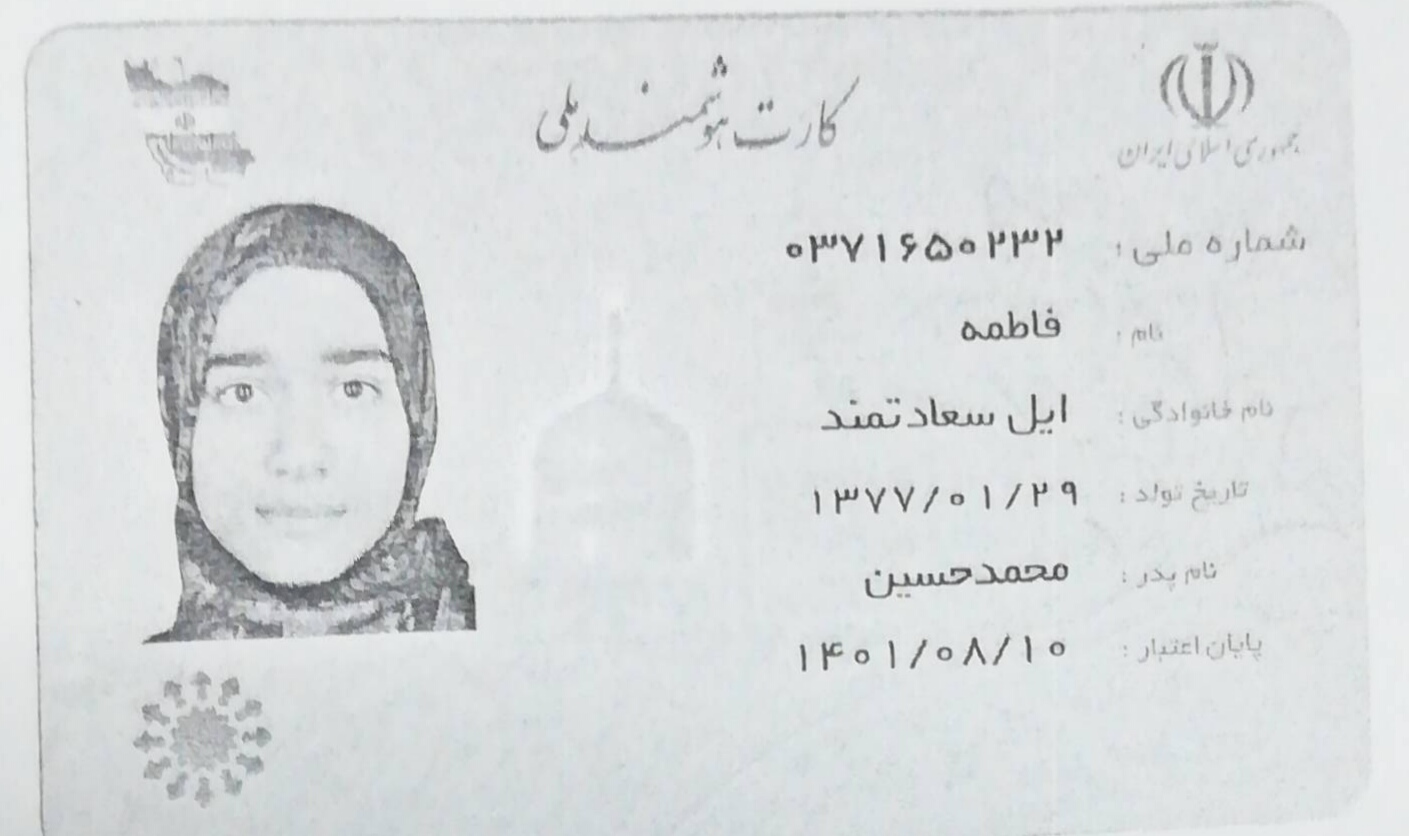 جمهوری اسلامی ایران
کارت هوشمند ملی
شماره ملی : ۰۳۷۱۶۵۰۲۳۲
نام : فاطمه
نام خانوادگی : ایل سعادتمند
تاریخ تولد : ۱۳۷۷/۰۱/۲۹
نام پدر : محمدحسین
پایان اعتبار : ۱۴۰۱/۰۸/۱۰